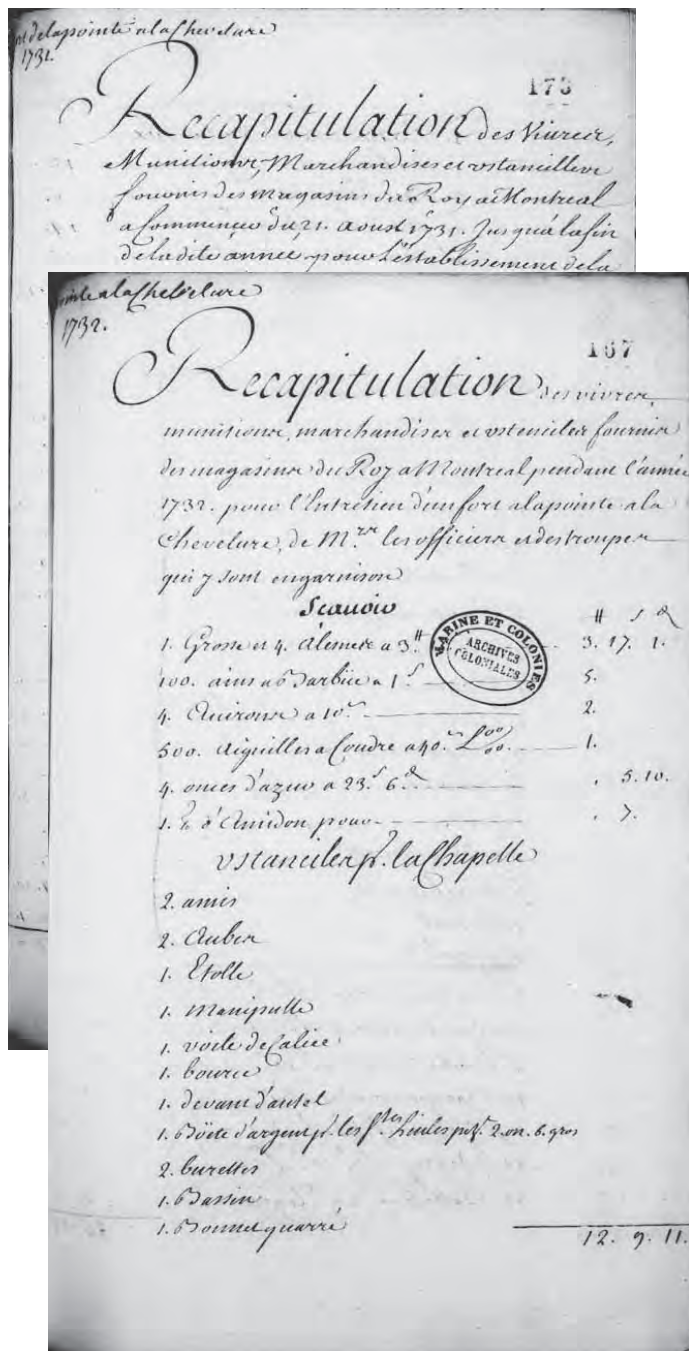 de la pointe a la Chevelure
1731.
173
Recapitulation des Vivres,
Munitions, Marchandises et ustancilles
fournis des magasins du Roy a Montreal
a Commencer du 21. aoust 1731. Jusqu'a la fin
de la dite année pour l'établissement de la
pointe a la Chevelure
1732.
167
Recapitulation des vivres,
munitions, marchandises et ustenciles fournis
des magasins du Roy a Montreal pendant l'année
1732. pour l'Entretien d'un fort a la pointe a la
Chevelure, de M.rs les officiers et des troupes
qui y sont en garnison
Scavoir
# s d
1. Grosse et 4. Alenes a 3.# 3. 17. 1.
100. ains a Barbüe a 1.s 5.
4. Avirons a 10.s 2.
500. Aiguilles a Coudre a 40.s 1.
4. onces d'azur a 23.s 6.d . 5. 10.
1. d'Amidon pour . 7.
MARINE ET COLONIES
ARCHIVES COLONIALES
ustanciles p.r la Chapelle
2. amis
2. Aubes
1. Etolle
1. Manipulle
1. voile de Calice
1. bource
1. devant d'autel
1. Boëte d'argent p.r les s.tes huiles 2. on. 6. gros
2. burettes
1. Bassin
1. Bonnet quarré
12. 9. 11.